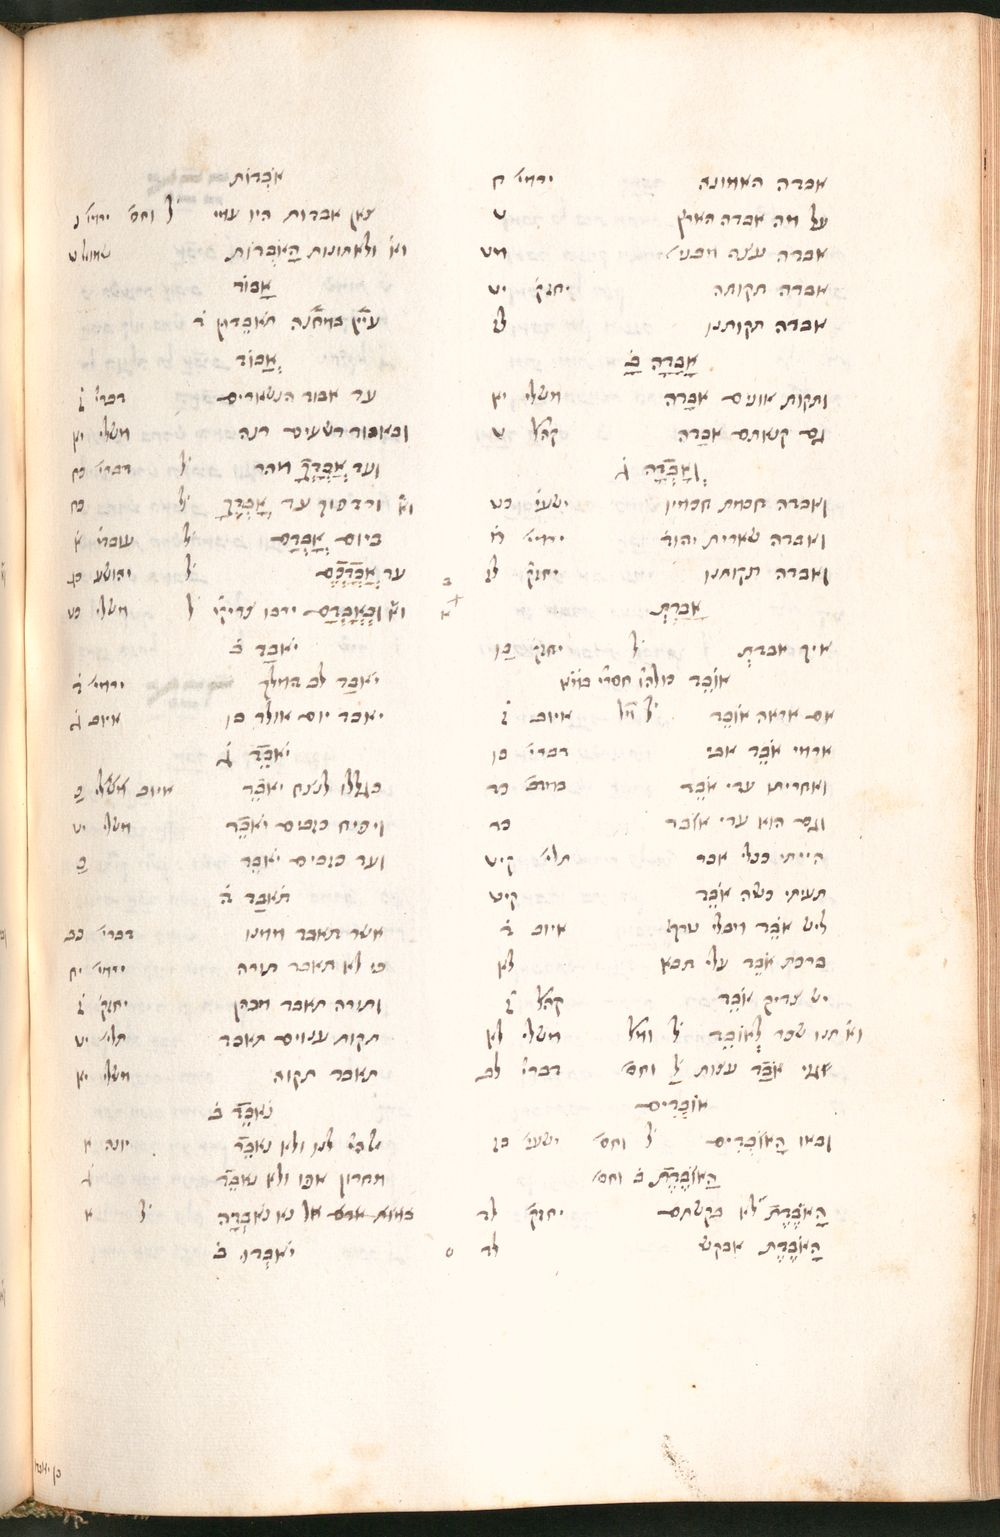 אבדה האמונה ירמי׳ ח
על מה אבדה הארץ ט
אבדה עצה מבני׳ מט
אבדה תקותה יחזק׳ יט
אבדה תקותנו לז
אָבָדָה בֿ
ותקות אונים אבדה משלי יא
גם קנאתם אבדה קהל׳ ט
וְאָבְדָה גֿ
ואבדה חכמת חכמיו ישעי׳ כט
ואבדה שארית יהודה ירמי׳ מ
ואבדה תקותנו יחזק׳ לז
אָבַדְתְּ
איך אבדת ל׳ יחזק׳ כו
אוֹבֵד כולהון חסרי׳
אם אראה אובד ל׳ מל׳ איוב ל
ארמי אֹבֵד אבי דברי׳ כו
ואחריתו עדי אֹבֵד במדב׳ כד
וגם הוא עדי אובד כד
הייתי ככלי אבד תלי׳
תעיתי כשה אֹבֵד קיט
ליש אֹבֵד מבלי טרף איוב ד
ברכת אֹבֵד עלי תבא
יש צדיק אֹבֵד קהל׳ ז
תנו שכר לְאוֹבֵד ל׳ ומל׳ משלי לא
גוי אֹבַד עצות ל׳ וחס׳ דברי׳ לב
אוֹבְדִים
ובאו הָאֹבְדִים ל׳ וחס׳ ישעי׳ כז
הָאֹבֶדֶת בֿ וחס׳
הָאֹבֶדֶת לא בקשתם יחזק׳ לד
הָאֹבֶדֶת אבקש לד
אֹבְדוֹת
צאן אבדות היו עמי ל׳ וחס׳ ירמי׳ נ
ולאתונות הָאֹבְדוֹת שמוא׳ ט
אָבוֹד
תאבדון ד
אֲבוֹד
עד אבוד הנשארים דברי׳ ז
ובאבוד רשעים רנה משלי יא
ועד אֲבָדְךָ מהר ל׳ דברי׳ כח
ורדפוך עד אָבְדֶךָ ל׳ כח
ביום אָבְדָם ל׳ עובדי׳ א
עד אֲבָדְכֶם ל׳ יהושע כג
וּבְאָבְדָם ירבו צדיקי׳ ל׳ משלי כח
יאבַד בֿ
יאבד לב המלך ירמי׳ ד
יאבד יום אולד בו איוב ג
יֹאבֵד גֿ
כגללו לנצח יאבד איוב כ
ויפיח כזבים יאבד משלי יט
ועד כזבים יאבד כ
תֹּאבַד הֿ
אשר תאבד ממנו דברי׳ כב
כי לא תאבד תורה ירמי׳ יח
ותורה תאבד מכהן יחזק׳ ז
תקות עניים תאבד תלי׳ ט
תאבד תקוה משלי יא
נֹאבֵד בֿ
לנו ולא נאבד יונה א
מחרון אפו ולא נאבד ג
נא נֹאבְדָה ל׳ א
יֹאבְדוּ בֿ
כן יאבדו